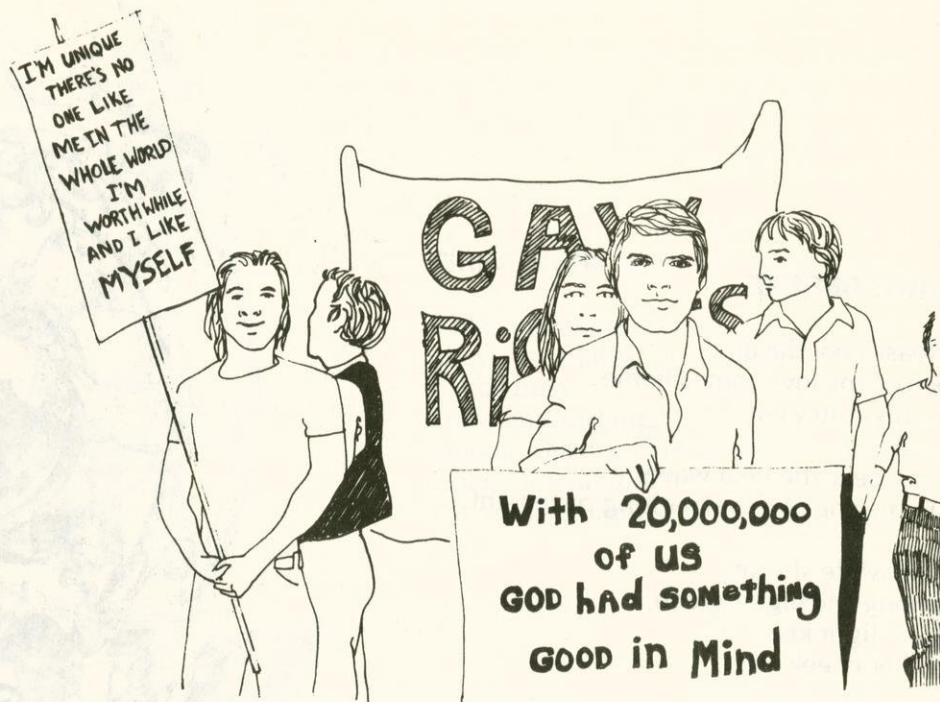 I'M UNIQUE
THERE'S NO
ONE LIKE
ME IN THE
WHOLE WORLD
I'M
WORTH WHILE
AND I LIKE
MYSELF
GAY
Ri S
With 20,000,000
of US
GOD hAd SOMEthiNg
GOOD in Mind